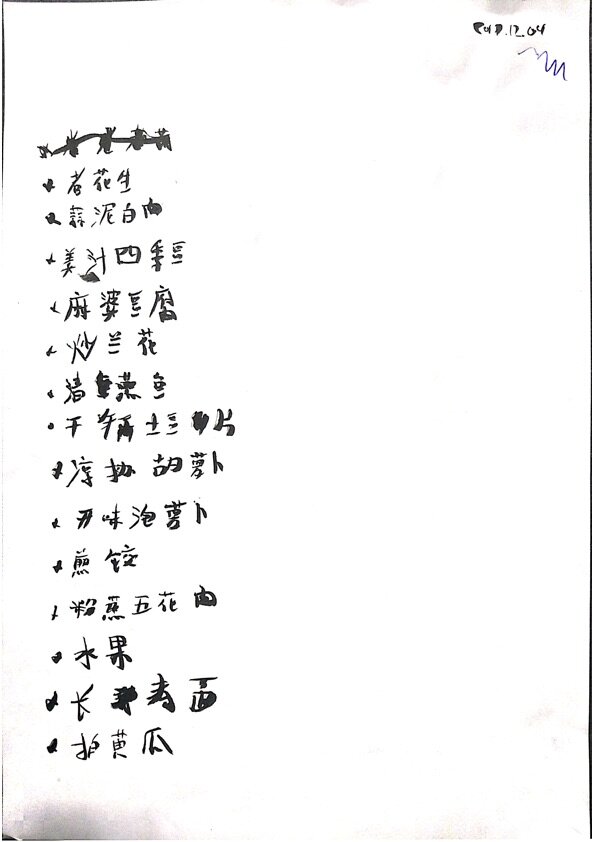 12.04
煮花生
蒜泥白肉
美汁四季豆
麻婆豆腐
炒兰花
清蒸鱼
干锅土豆片
凉拌胡萝卜
开味泡萝卜
煎饺
粉蒸五花肉
水果
长寿面
拍黄瓜